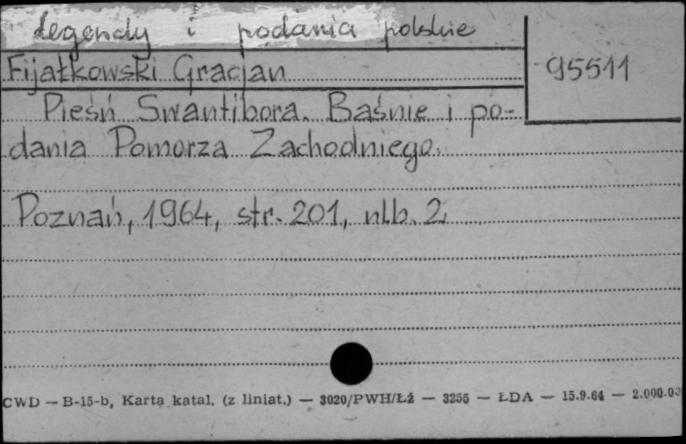 legendy i podania polskie
Fijałkowski Gracjan
95511
Pieśń Swantibora. Baśnie i po-
dania Pomorza Zachodniego.
Poznań, 1964, str. 201, nlb. 2
CWD — B-15-b, Karta katal. (z liniat.) — 3020/PWH/Łź — 3255 — ŁDA — 15.9.64 — 2.000.00